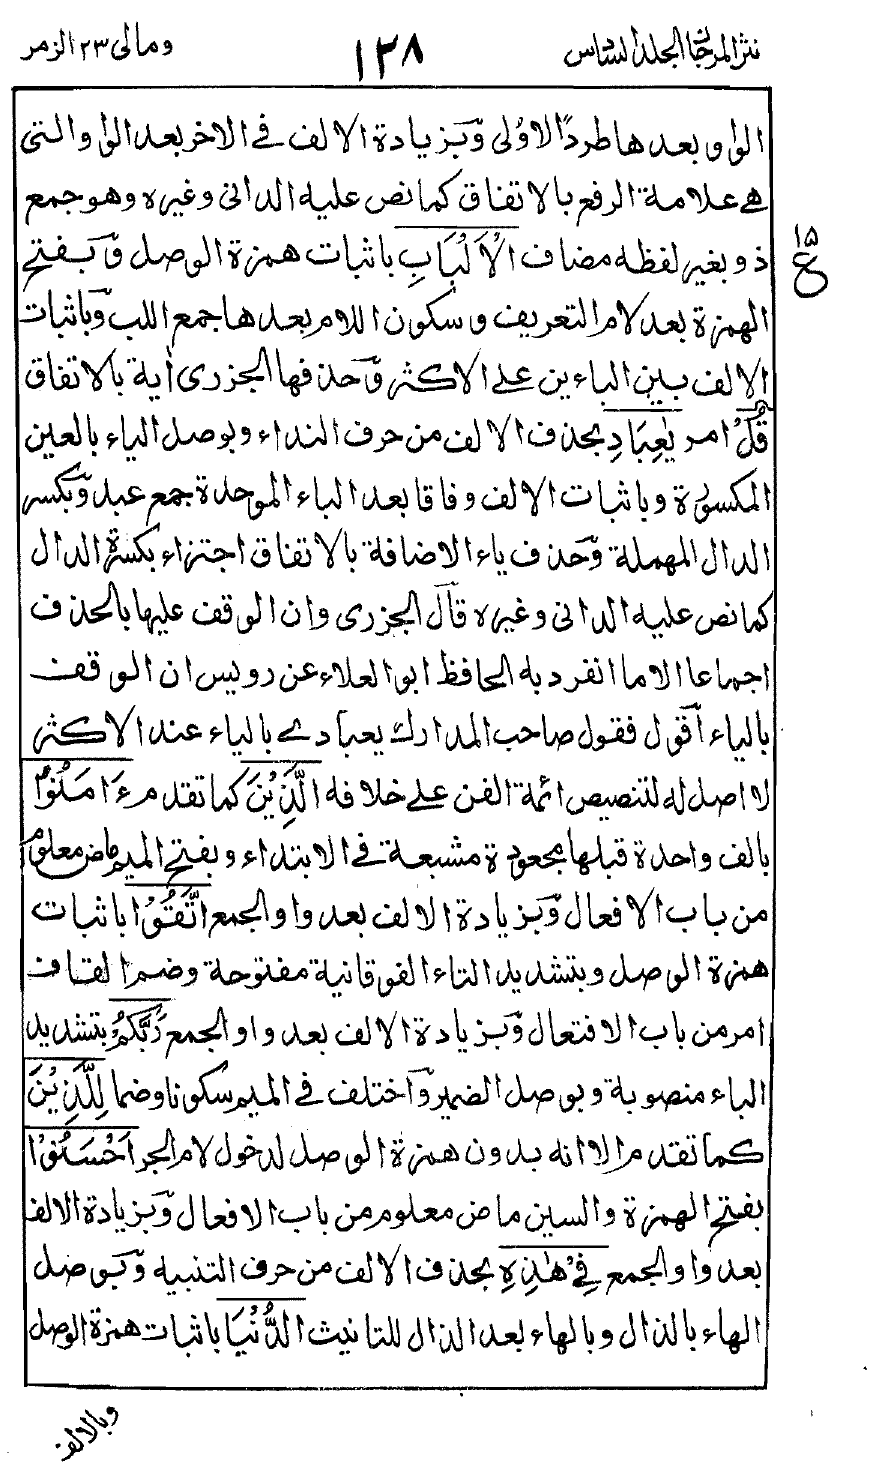 نثر المرجان الجلد السادس
١٢٨
ومالي ٢٣ الزمر
الواو بعدها طردًا للاولى وبزيادة الالف في الاخر بعد الواو التى
هي علامة الرفع بالاتفاق كما نص عليه الدانى وغيره وهو جمع
ذو بغير لفظه مضاف الْاَلْبَابِ باثبات همزة الوصل وبفتح
١٥
ع
الهمزة بعد لام التعريف وسكون اللام بعدها جمع اللب وباثبات
الالف بين الباءين على الاكثر وحذفها الجزرى اٰية بالاتفاق
قُلْ امر يٰعِبَادِ بحذف الالف من حرف النداء وبوصل الياء بالعين
المكسورة وباثبات الالف وفاقا بعد الباء الموحدة جمع عبد وبكسر
الدال المهملة وحذف ياء الاضافة بالاتفاق اجتزاء بكسرة الدال
كما نص عليه الدانى وغيره قال الجزرى وان الوقف عليها بالحذف
اجماعا الا ما انفرد به الحافظ ابو العلاء عن رويس ان الوقف
بالياء اقول فقول صاحب المدارك يعبادي بالياء عند الاكثر
لا اصل له لتنصيص ائمة الفن على خلافه الَّذِيْنَ كما تقدم ءَامَنُوْا
بالف واحدة قبلها مجعودة مشبعة في الابتداء وبفتح الميم ماض معلوم
من باب الافعال وبزيادة الالف بعد واو الجمع اتَّقُوْا باثبات
همزة الوصل وبتشديد التاء الفوقانية مفتوحة وضم القاف
امر من باب الافتعال وبزيادة الالف بعد واو الجمع رَبَّكُمْ بتشديد
الباء منصوبة وبوصل الضمير واختلف في الميم سكونا وضما لِلَّذِيْنَ
كما تقدم الا انه بدون همزة الوصل لدخول لام الجر اَحْسَنُوْا
بفتح الهمزة والسين ماض معلوم من باب الافعال وبزيادة الالف
بعد واو الجمع فِيْ هٰذِهِ بحذف الالف من حرف التنبيه وبوصل
الهاء بالذال وبالهاء بعد الذال للتانيث الدُّنْيَا باثبات همزة الوصل
وبالالف